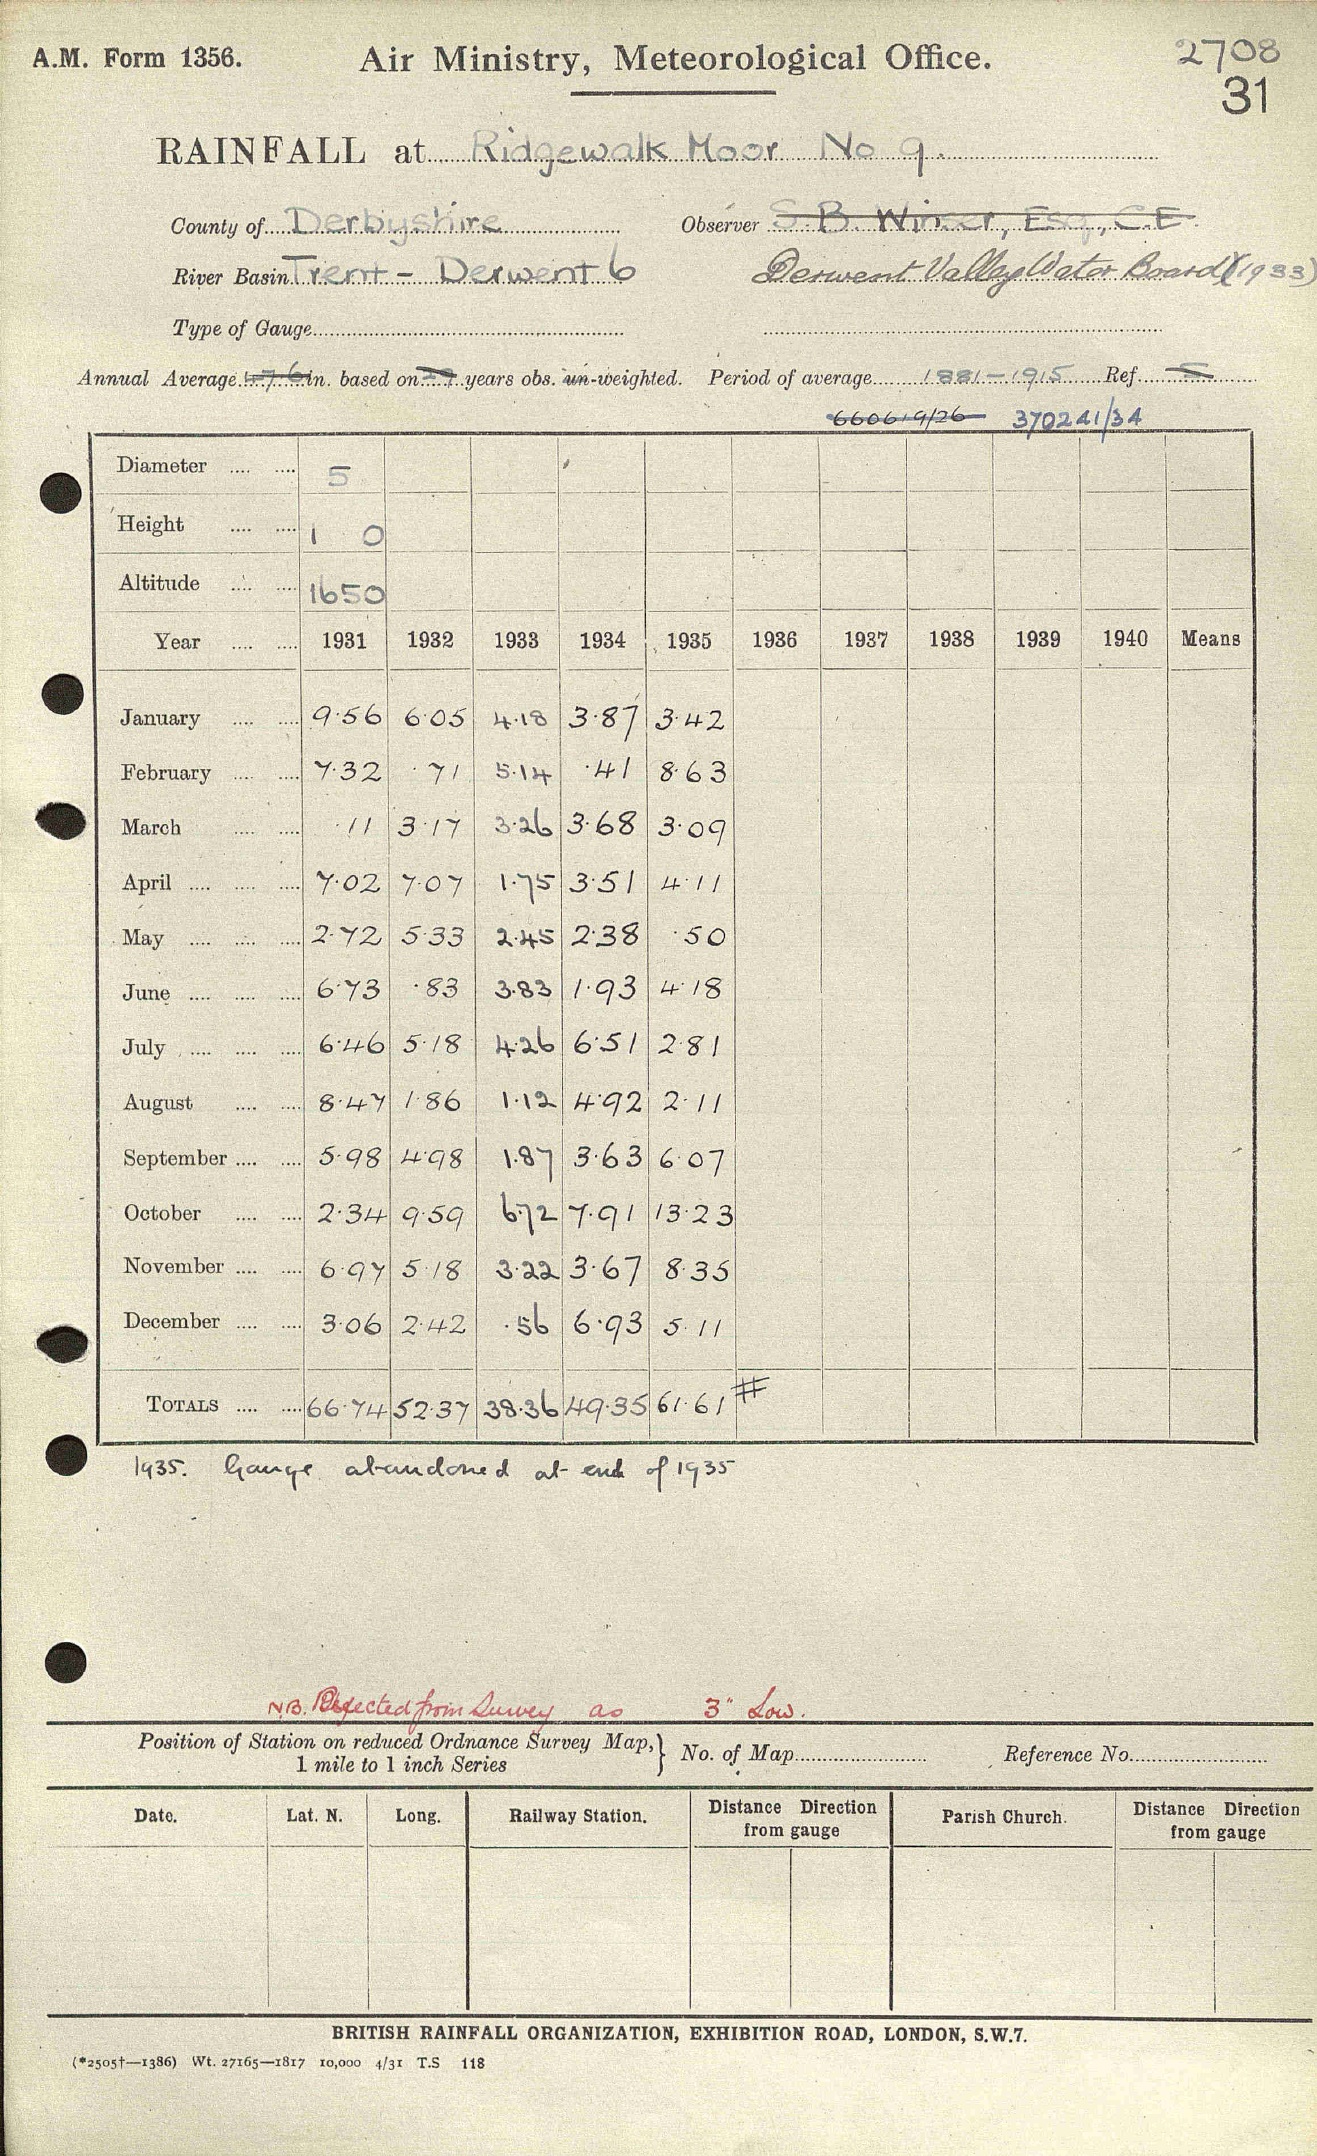 A.M. Form 1356. Air Ministry, Meteorological Office. 2708
31
RAINFALL at Ridgewalk Moor No 9.
County of Derbyshire Observer S.B. Winser, Esq., C.E.
River Basin Trent - Derwent 6 Derwent Valley Water Board (1933)
Type of Gauge
Annual Average 47.6 in. based on years obs. un-weighted. Period of average 1881-1915 Ref. 5
660619/26 370241/34
Diameter 5
Height 1 0
Altitude 1650
Year 1931 1932 1933 1934 1935 1936 1937 1938 1939 1940 Means
January 9.56 6.05 4.18 3.87 3.42
February 7.32 .71 5.14 .41 8.63
March .11 3.17 3.26 3.68 3.09
April 7.02 7.07 1.75 3.51 4.11
May 2.72 5.33 2.45 2.38 .50
June 6.73 .83 3.83 1.93 4.18
July 6.46 5.18 4.26 6.51 2.81
August 8.47 1.86 1.12 4.92 2.11
September 5.98 4.98 1.87 3.63 6.07
October 2.34 9.59 6.72 7.91 13.23
November 6.97 5.18 3.22 3.67 8.35
December 3.06 2.42 .56 6.93 5.11
TOTALS 66.74 52.37 38.36 49.35 61.61 #
1935. Gauge abandoned at end of 1935
N.B. Rejected from Survey as 3" Low.
Position of Station on reduced Ordnance Survey Map, } No. of Map Reference No.
1 mile to 1 inch Series
Date. Lat. N. Long. Railway Station. Distance Direction from gauge Parish Church. Distance Direction from gauge
BRITISH RAINFALL ORGANIZATION, EXHIBITION ROAD, LONDON, S.W.7.
(*2505†—1386) Wt. 27165—1817 10,000 4/31 T.S 118